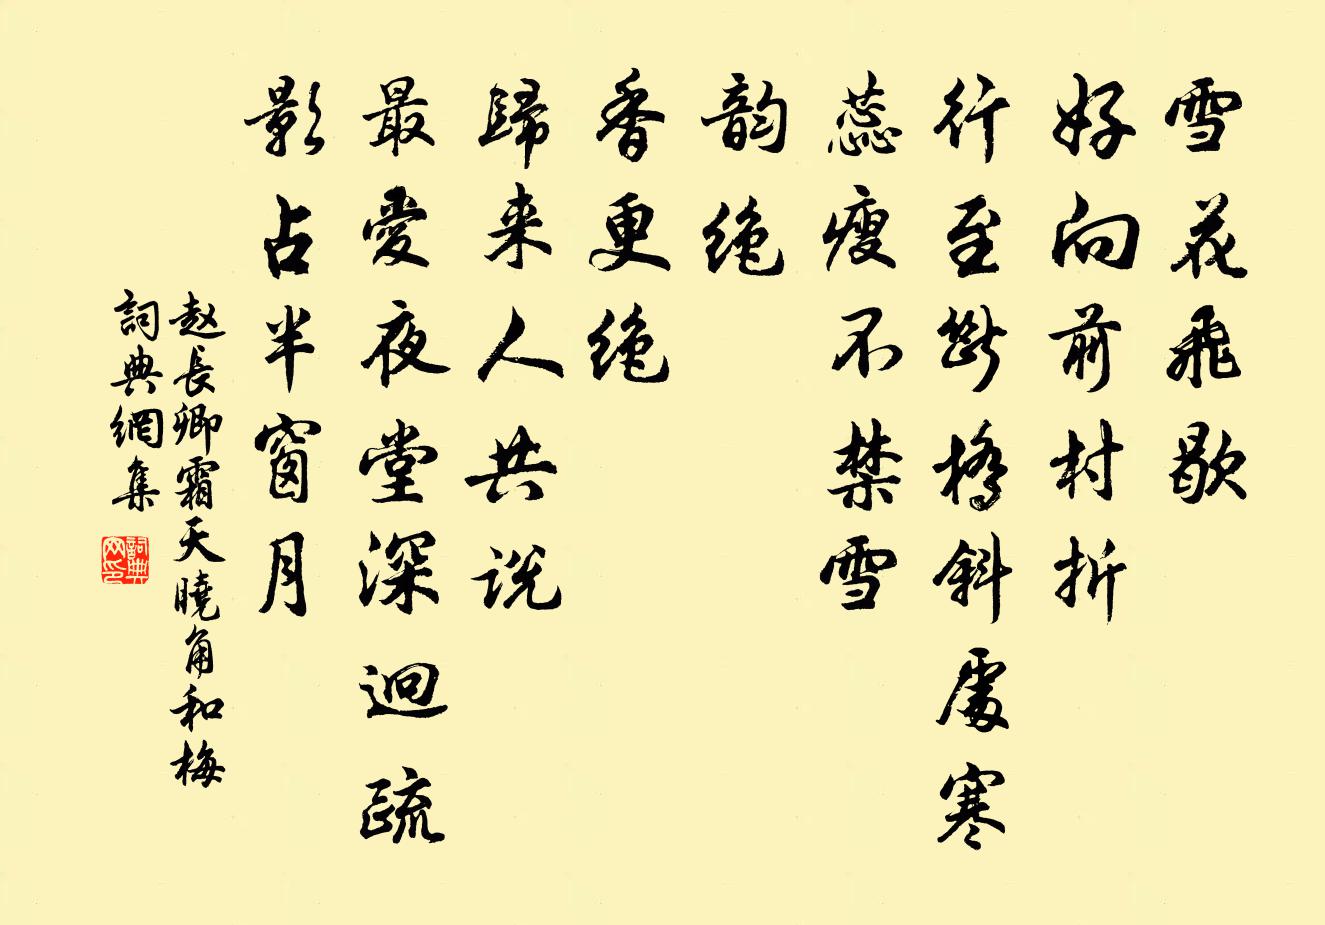 雪花飛歇
好向前村折
行至斷橋斜處寒
蕊瘦不禁雪
韵绝
香更绝
歸来人共説
最愛夜堂深迥疏
影占半窗月
赵長卿霜天曉角和梅
詞典網集
詞典网印